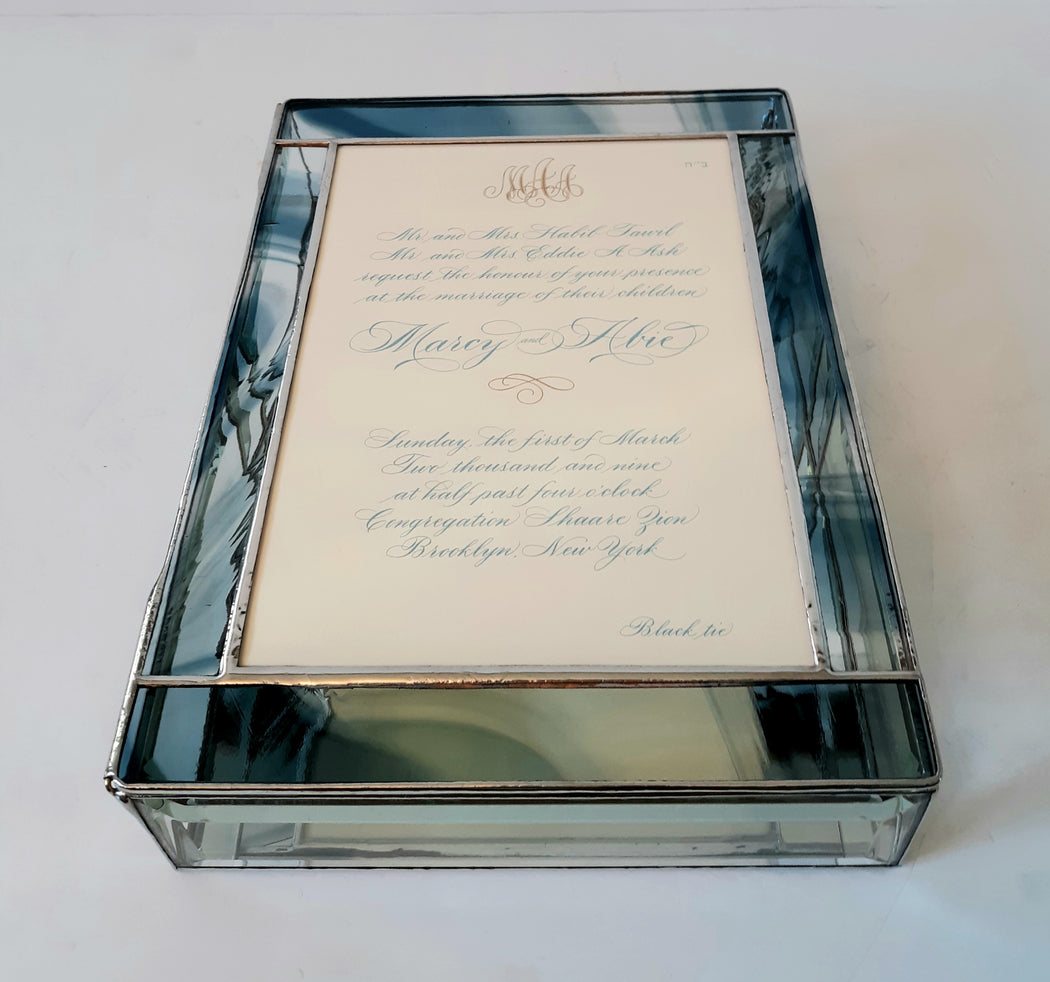 MAA
ב״ה
Mr and Mrs Habib Tawil
Mr and Mrs Eddie A Ash
request the honour of your presence
at the marriage of their children
Marcy and Abie
Sunday, the first of March
Two thousand and nine
at half past four o'clock
Congregation Shaare Zion
Brooklyn, New York
Black tie